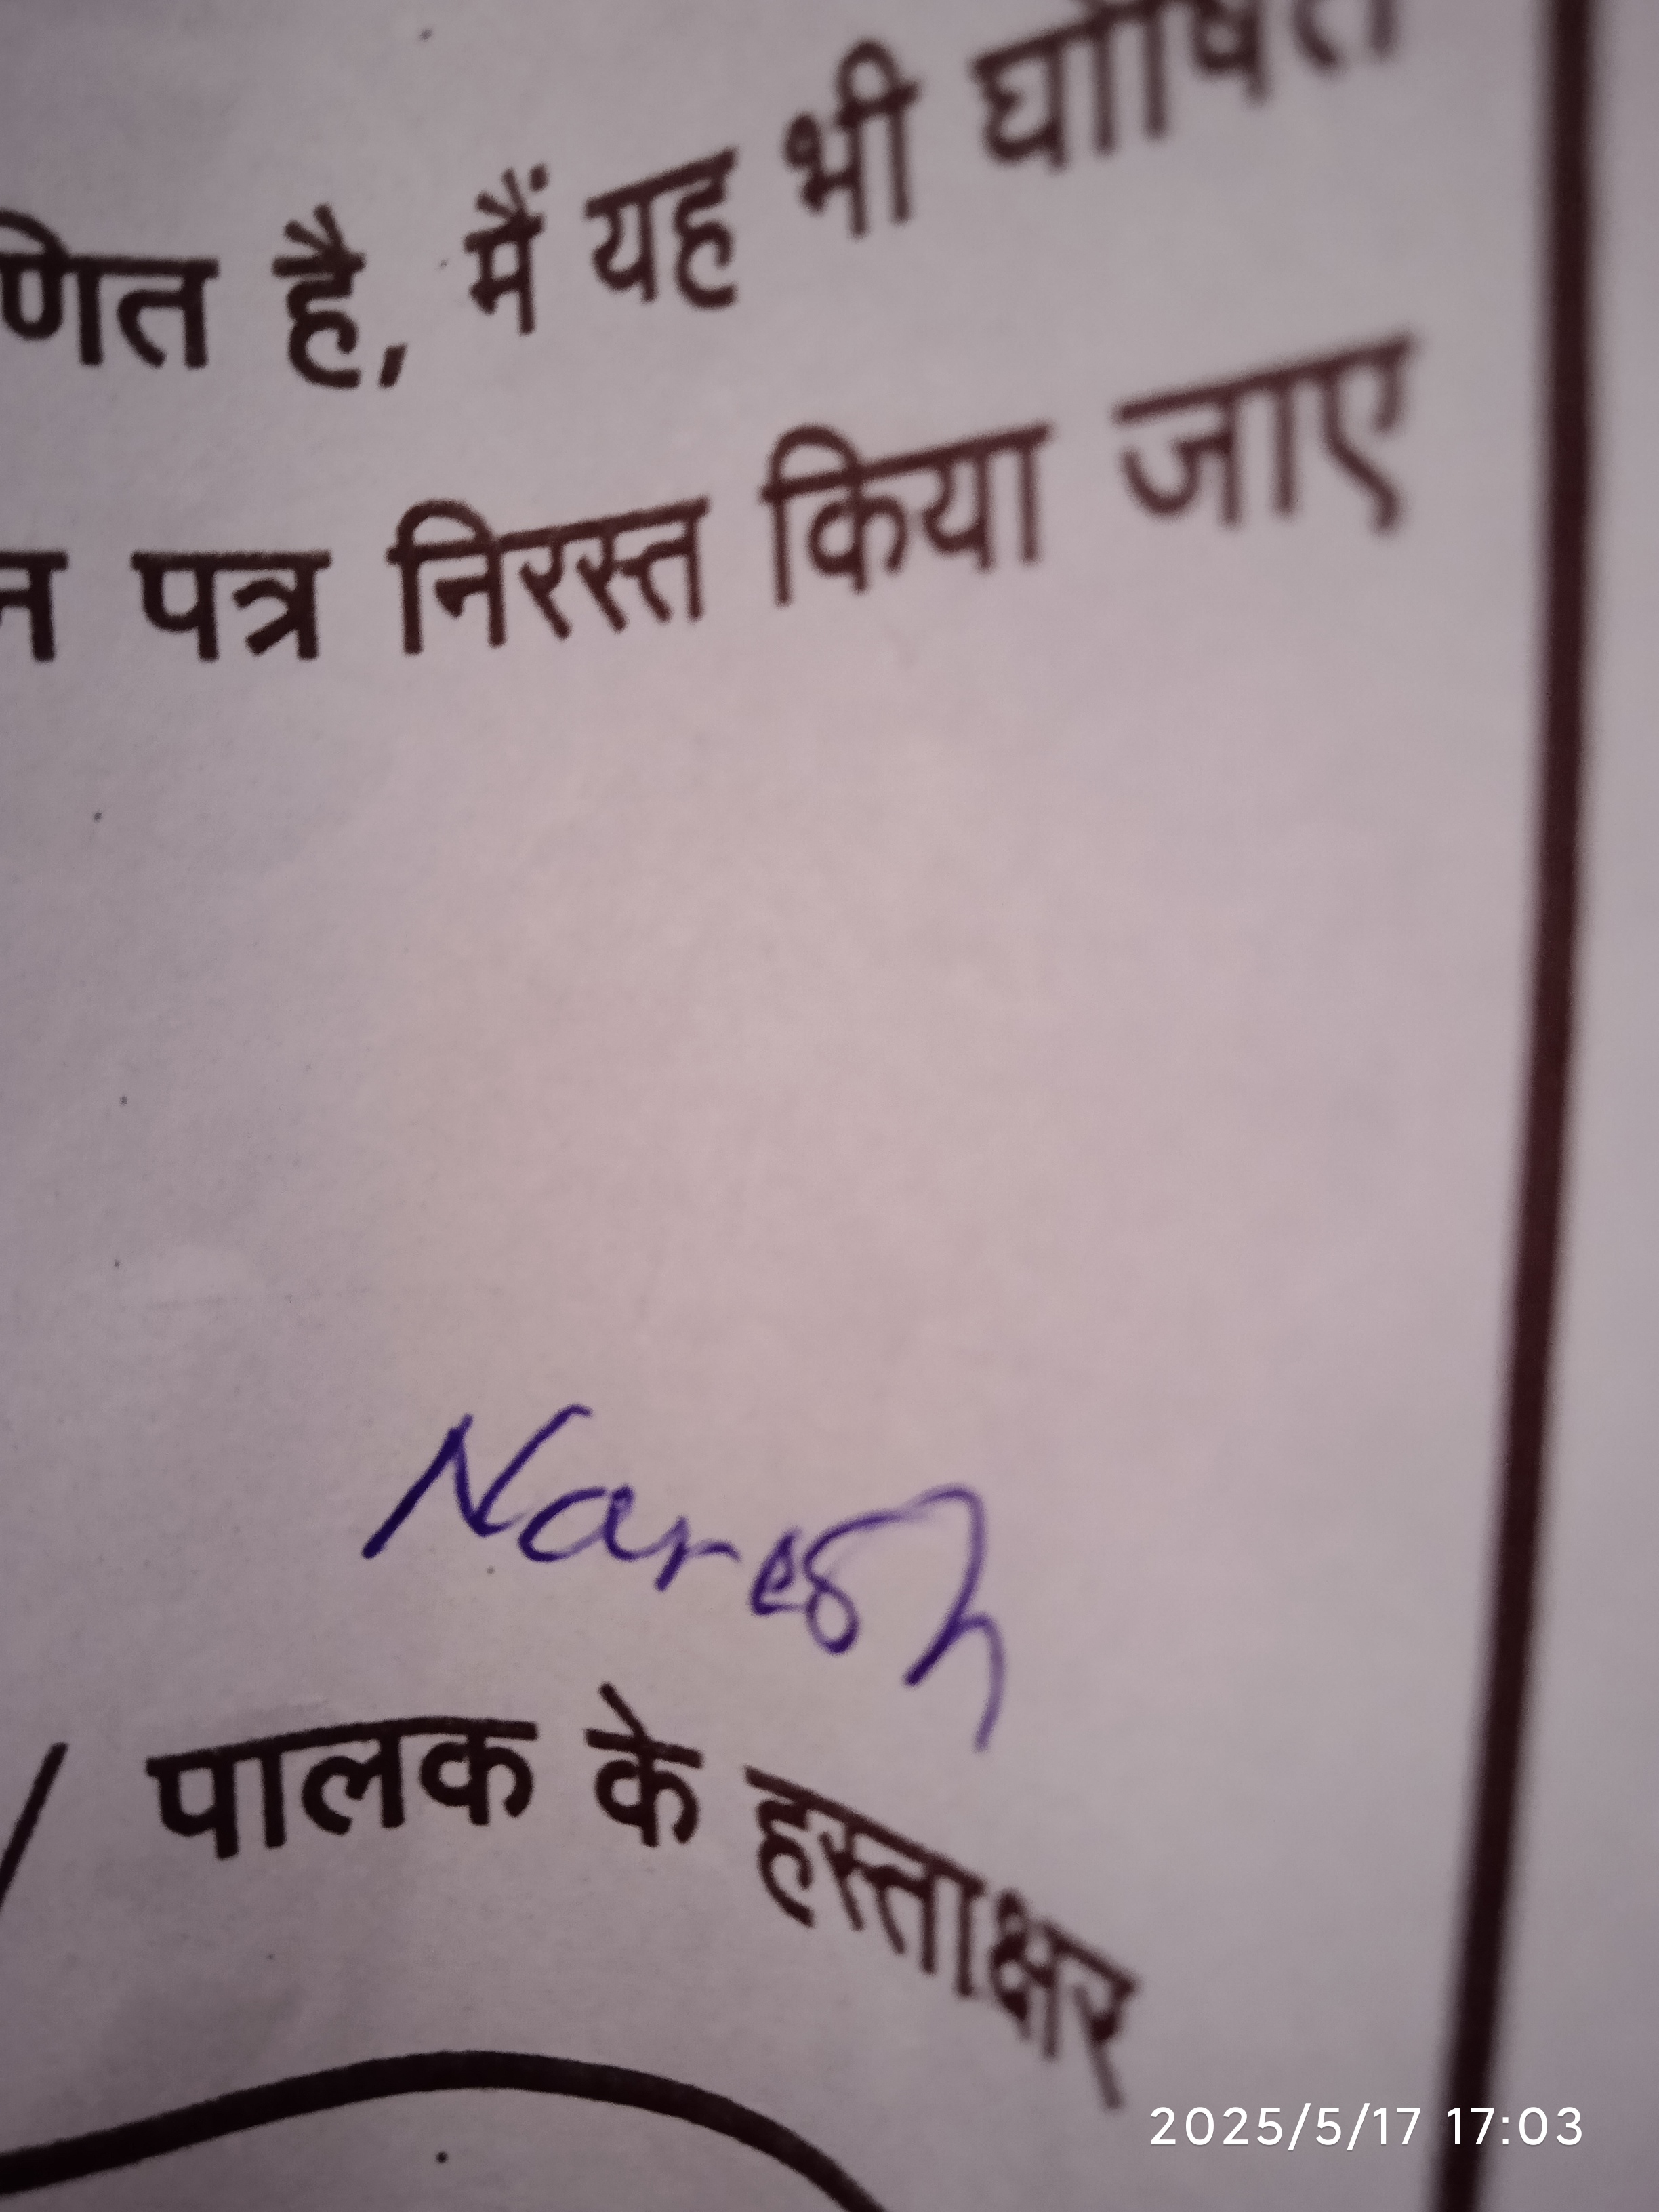 णित है, मैं यह भी घोषित
न पत्र निरस्त किया जाए
Naresh
/ पालक के हस्ताक्षर
2025/5/17 17:03